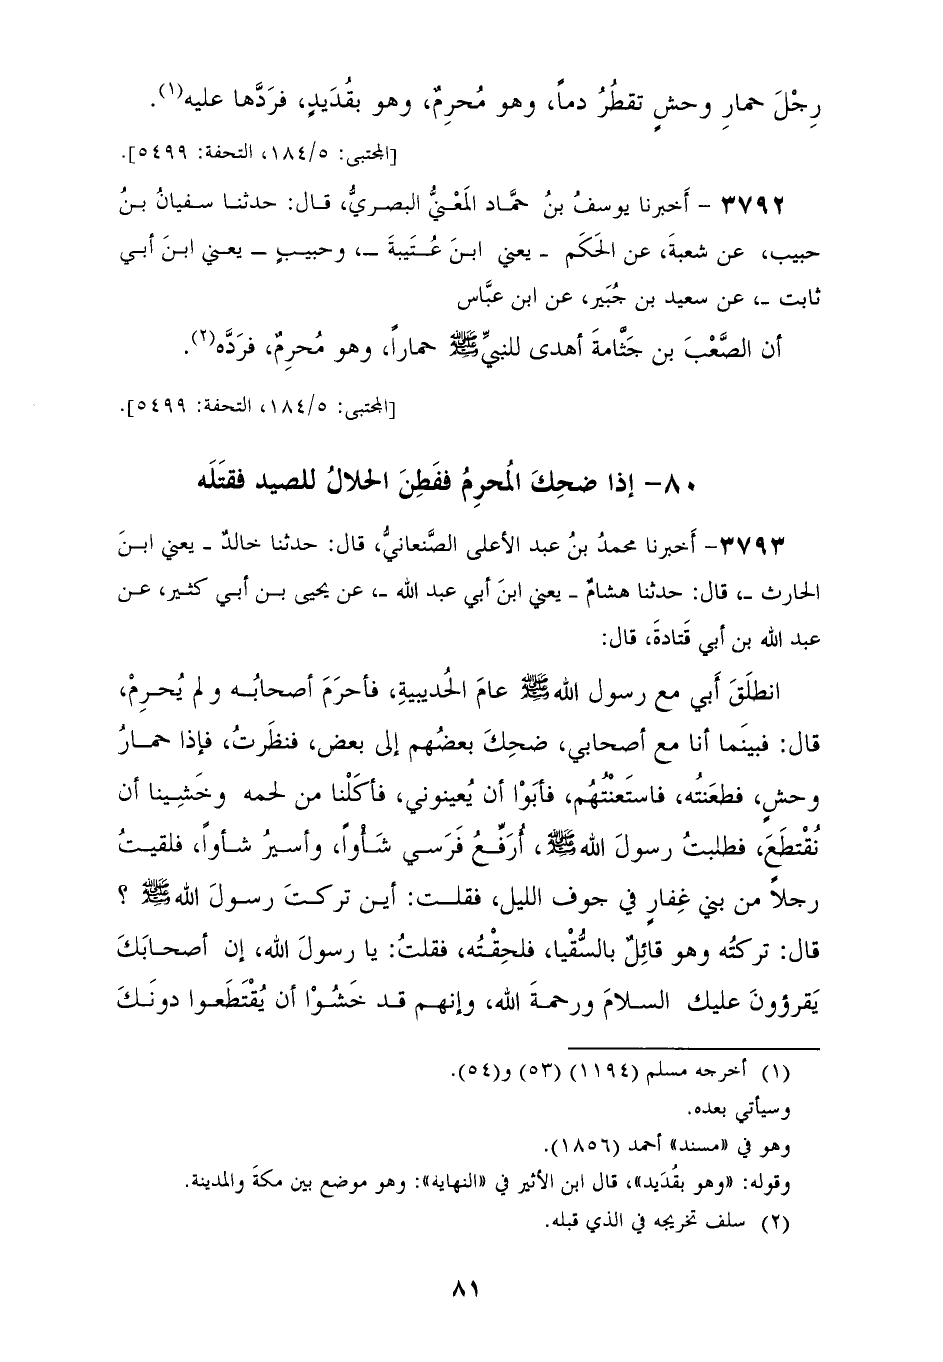 رِجْلَ حمارِ وحشٍ تقطُرُ دماً، وهو مُحرِمٌ، وهو بقُدَيدٍ، فردَّها عليه(١).
[المجتبى: ١٨٤/٥، التحفة: ٥٤٩٩].
٣٧٩٢ - أَخبرنا يوسفُ بنُ حمَّاد المَعْنيُّ البصريُّ، قال: حدثنا سفيانُ بنُ
حبيب، عن شعبةَ، عن الحَكَم - يعني ابنَ عُتَيبةَ -، وحبيبٍ - يعني ابنَ أبي
ثابت -، عن سعيد بن جُبَير، عن ابن عبَّاس
أن الصَّعْبَ بن جَثَّامةَ أهدى للنبيِّ ﷺ حماراً، وهو مُحرِمٌ، فرَدَّه(٢).
[المجتبى: ١٨٤/٥، التحفة: ٥٤٩٩].
٨٠- إذا ضحِكَ المُحرِمُ ففَطِنَ الحلالُ للصيد فقتَلَه
٣٧٩٣- أَخبرنا محمدُ بنُ عبد الأعلى الصَّنعانيُّ، قال: حدثنا خالدٌ - يعني ابنَ
الحارث -، قال: حدثنا هشامٌ - يعني ابنَ أبي عبد الله -، عن يحيى بن أبي كثير، عن
عبد الله بن أبي قَتادةَ، قال:
انطلَقَ أَبي مع رسول الله ﷺ عامَ الحُديبيةِ، فأحرَمَ أصحابُه و لم يُحرِمْ،
قال: فبينَما أنا مع أصحابي، ضحِكَ بعضُهم إلى بعض، فنظَرتُ، فإذا حمارُ
وحشٍ، فطعَنتُه، فاستَعنْتُهُم، فأبَوْا أن يُعينوني، فأكَلْنا من لحمه وخَشِينا أن
نُقْتطَعَ، فطلبتُ رسولَ الله ﷺ، أُرَفِّعُ فَرَسي شَأْواً، وأسيرُ شأواً، فلقيتُ
رجلاً من بني غِفارٍ في جوف الليل، فقلت: أين تركتَ رسولَ الله ﷺ ؟
قال: تركتُه وهو قائِلٌ بالسُّقْيا، فلحِقْتُه، فقلتُ: يا رسولَ الله، إن أصحابَكَ
يَقرؤونَ عليك السلامَ ورحمةَ الله، وإنهم قد خَشُوْا أن يُقْتَطَعوا دونَكَ
(١) أخرجه مسلم (١١٩٤) (٥٣) و(٥٤).
وسيأتي بعده.
وهو في «مسند» أحمد (١٨٥٦).
وقوله: «وهو بقُدَيد»، قال ابن الأثير في «النهاية»: وهو موضع بين مكةَ والمدينة.
(٢) سلف تخريجه في الذي قبله.
٨١